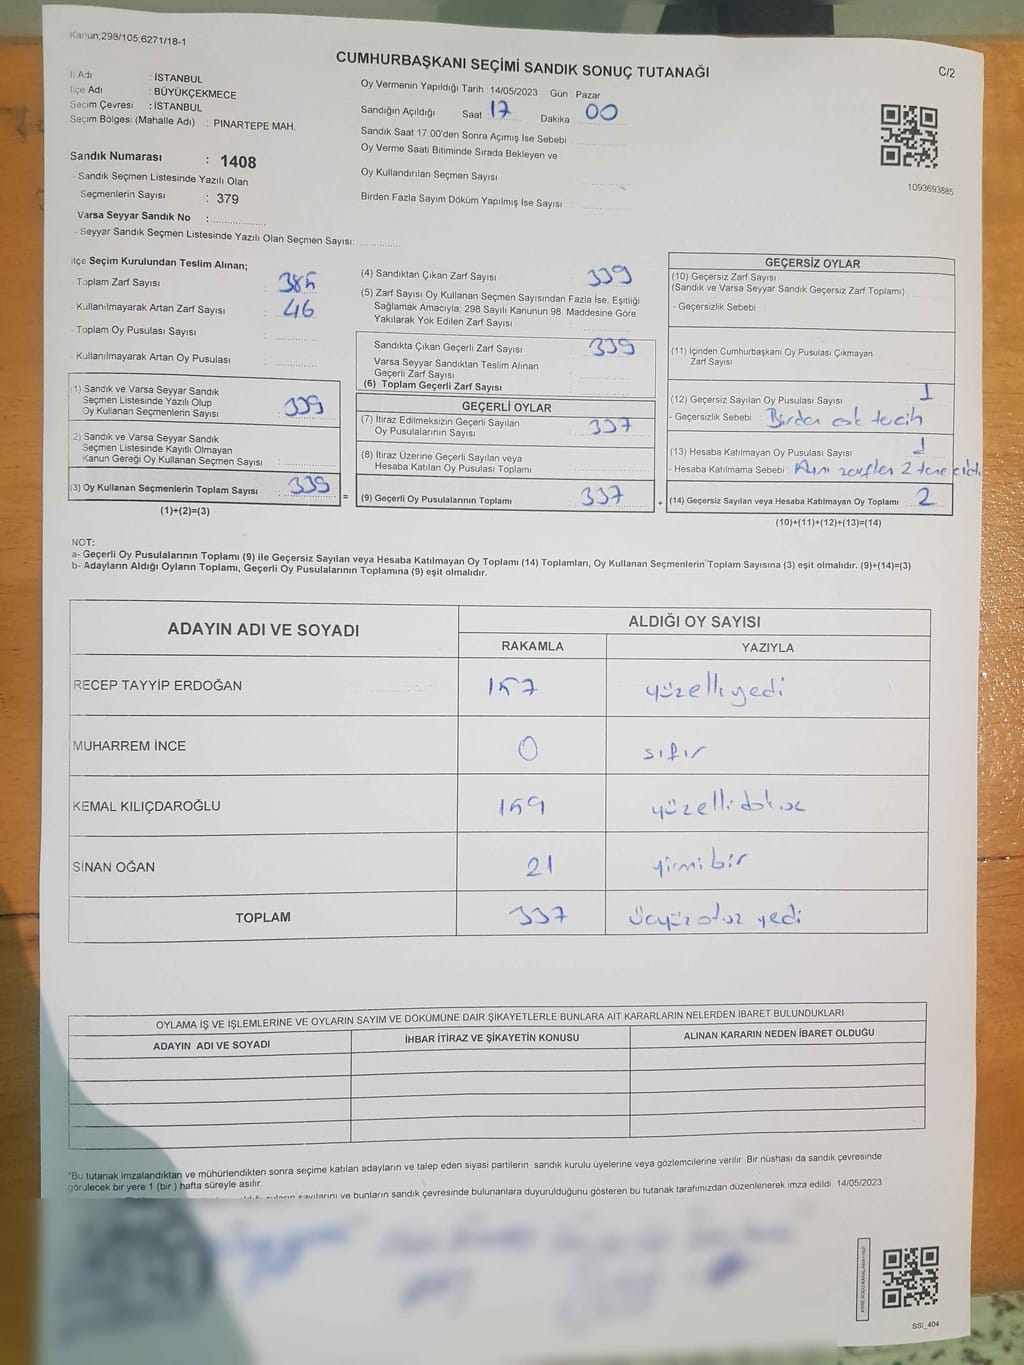 Kanun;298/105;6271/18-1
CUMHURBAŞKANI SEÇİMİ SANDIK SONUÇ TUTANAĞI
C/2
İl Adı : İSTANBUL
İlçe Adı : BÜYÜKÇEKMECE
Seçim Çevresi : İSTANBUL
Seçim Bölgesi (Mahalle Adı) : PINARTEPE MAH.
Sandık Numarası : 1408
- Sandık Seçmen Listesinde Yazılı Olan
Seçmenlerin Sayısı : 379
Varsa Seyyar Sandık No :
- Seyyar Sandık Seçmen Listesinde Yazılı Olan Seçmen Sayısı:
Oy Vermenin Yapıldığı Tarih : 14/05/2023 Gün : Pazar
Sandığın Açıldığı Saat : 17 Dakika : 00
Sandık Saat 17:00'den Sonra Açılmış İse Sebebi :
Oy Verme Saati Bitiminde Sırada Bekleyen ve
Oy Kullandırılan Seçmen Sayısı
Birden Fazla Sayım Döküm Yapılmış İse Sayısı :
1093693885
İlçe Seçim Kurulundan Teslim Alınan;
- Toplam Zarf Sayısı : 385
- Kullanılmayarak Artan Zarf Sayısı : 46
- Toplam Oy Pusulası Sayısı :
- Kullanılmayarak Artan Oy Pusulası :
(1) Sandık ve Varsa Seyyar Sandık
Seçmen Listesinde Yazılı Olup
Oy Kullanan Seçmenlerin Sayısı : 339
(2) Sandık ve Varsa Seyyar Sandık
Seçmen Listesinde Kayıtlı Olmayan
Kanun Gereği Oy Kullanan Seçmen Sayısı :
(3) Oy Kullanan Seçmenlerin Toplam Sayısı : 339
(1)+(2)=(3)
=
(4) Sandıktan Çıkan Zarf Sayısı : 339
(5) Zarf Sayısı Oy Kullanan Seçmen Sayısından Fazla İse, Eşitliği
Sağlamak Amacıyla; 298 Sayılı Kanunun 98. Maddesine Göre
Yakılarak Yok Edilen Zarf Sayısı :
Sandıkta Çıkan Geçerli Zarf Sayısı : 339
Varsa Seyyar Sandıktan Teslim Alınan
Geçerli Zarf Sayısı :
(6) Toplam Geçerli Zarf Sayısı :
GEÇERLİ OYLAR
(7) İtiraz Edilmeksizin Geçerli Sayılan
Oy Pusulalarının Sayısı : 337
(8) İtiraz Üzerine Geçerli Sayılan veya
Hesaba Katılan Oy Pusulası Toplamı :
(9) Geçerli Oy Pusulalarının Toplamı : 337
+
GEÇERSİZ OYLAR
(10) Geçersiz Zarf Sayısı
(Sandık ve Varsa Seyyar Sandık Geçersiz Zarf Toplamı) :
- Geçersizlik Sebebi :
(11) İçinden Cumhurbaşkanı Oy Pusulası Çıkmayan
Zarf Sayısı
(12) Geçersiz Sayılan Oy Pusulası Sayısı : 1
- Geçersizlik Sebebi :
(13) Hesaba Katılmayan Oy Pusulası Sayısı : 1
- Hesaba Katılmama Sebebi : 2 tane
(14) Geçersiz Sayılan veya Hesaba Katılmayan Oy Toplamı : 2
(10)+(11)+(12)+(13)=(14)
NOT:
a- Geçerli Oy Pusulalarının Toplamı (9) ile Geçersiz Sayılan veya Hesaba Katılmayan Oy Toplamı (14) Toplamları, Oy Kullanan Seçmenlerin Toplam Sayısına (3) eşit olmalıdır. (9)+(14)=(3)
b- Adayların Aldığı Oyların Toplamı, Geçerli Oy Pusulalarının Toplamına (9) eşit olmalıdır.
ADAYIN ADI VE SOYADI
ALDIĞI OY SAYISI
RAKAMLA YAZIYLA
RECEP TAYYİP ERDOĞAN 157 yüzelliyedi
MUHARREM İNCE 0 sıfır
KEMAL KILIÇDAROĞLU 159 yüzellidokuz
SİNAN OĞAN 21 yirmibir
TOPLAM 337 üçyüzotuz yedi
OYLAMA İŞ VE İŞLEMLERİNE VE OYLARIN SAYIM VE DÖKÜMÜNE DAİR ŞİKAYETLERLE BUNLARA AİT KARARLARIN NELERDEN İBARET BULUNDUKLARI
ADAYIN ADI VE SOYADI İHBAR İTİRAZ VE ŞİKAYETİN KONUSU ALINAN KARARIN NEDEN İBARET OLDUĞU
*Bu tutanak imzalandıktan ve mühürlendikten sonra seçime katılan adayların ve talep eden siyasi partilerin sandık kurulu üyelerine veya gözlemcilerine verilir. Bir nüshası da sandık çevresinde
görülecek bir yere 1 (bir ) hafta süreyle asılır.
sayılarını ve bunların sandık çevresinde bulunanlara duyurulduğunu gösteren bu tutanak tarafımızdan düzenlenerek imza edildi. 14/05/2023
SSI_404